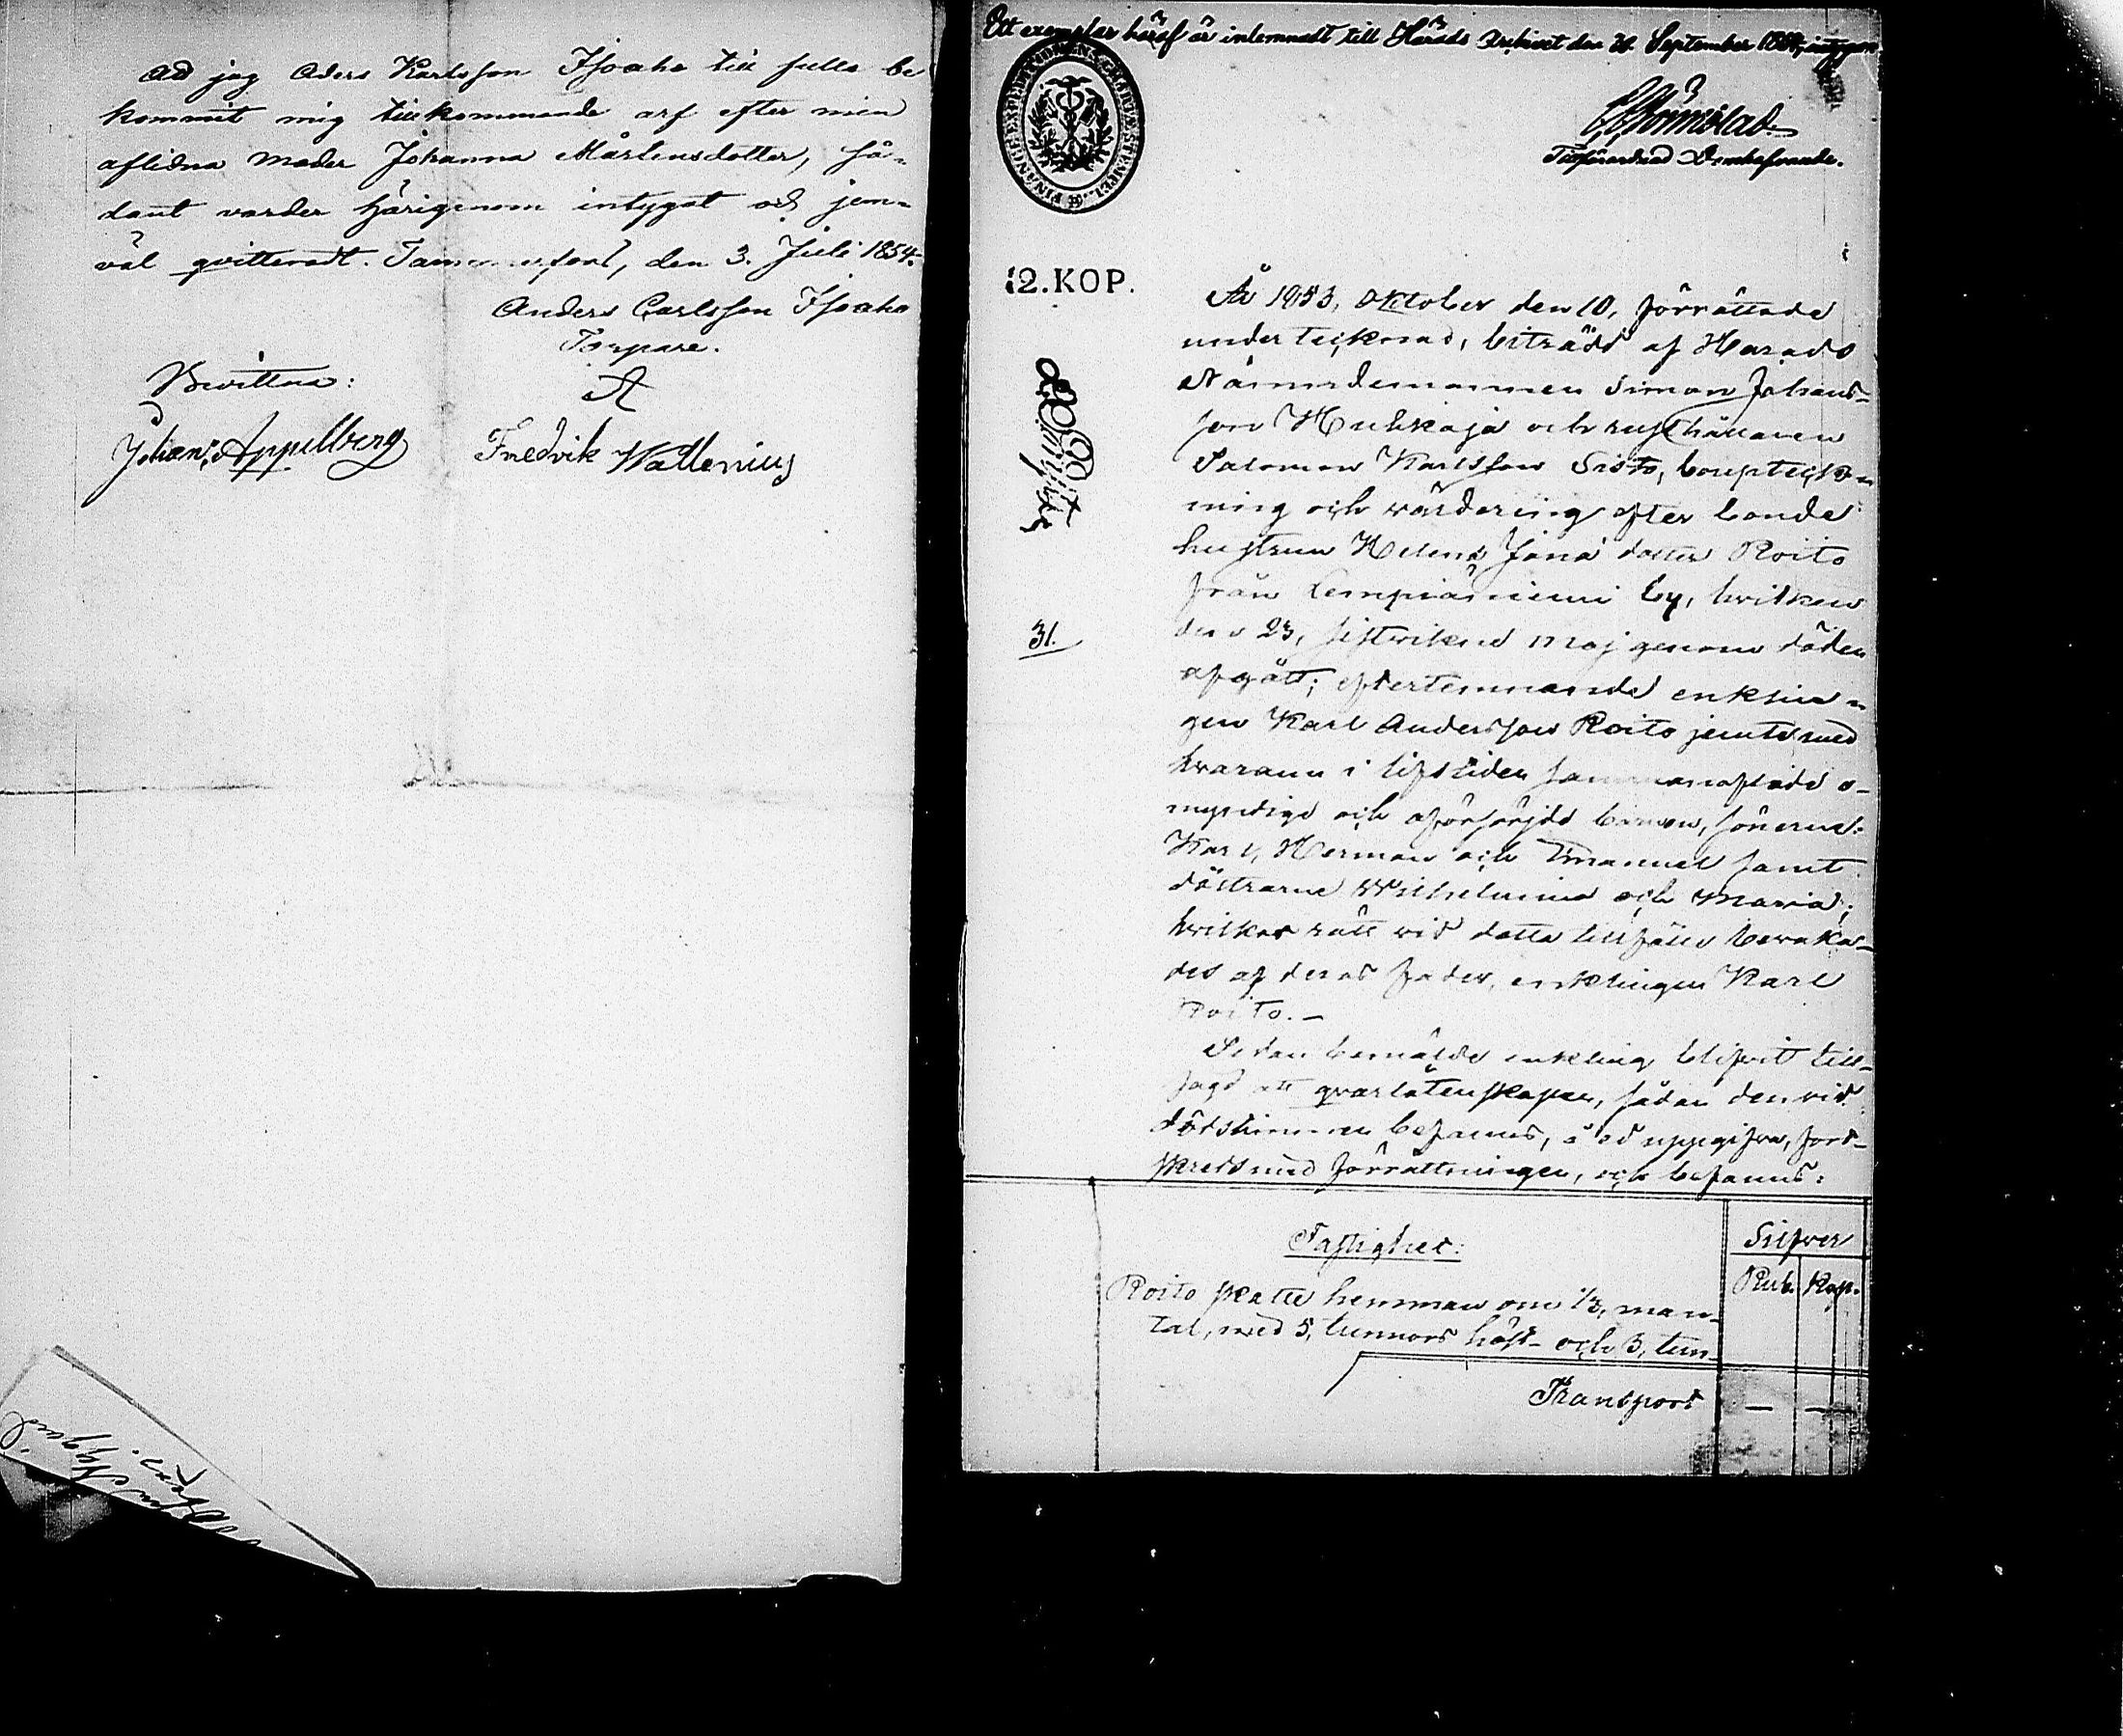 Ad jag Aders Karlsson Isoaho till fulla be
kommit mig tillkommande arf efter min
aflidna moder Johanna Mårtensdotter, så-
dant varder härigenom intygat och jem-
väl qvitteradt. den 3. Juli 1854.
Anders Carlsson Isoaho
Torpare.
Bevittna:
Johan Appelberg Fredrik Wallenius
Ett exemplar häraf är inlemnadt till Härads Archivet den September intygar
Tillförordnad Domhafvande.
12.KOP.
År 1853, Oktober den 10, förrättade
undertecknad, biträdd af Härads
Nämndemannen Simon Johans-
son Huhkaja och rusthållaren
Salomon Karlsson Sisto, boupteck-
ning och värdering efter bonde-
hustrun Helena dotter Roito
från Lempiäniemi by, hvilken
den 23, sistvikne Maj genom döden
afgått; efterlemnande enklin-
gen Karl Andersson Roito jemte med
hvarann i lifstiden sammanaflade o-
myndige och oförsörjde barnen, sönerne:
Karl, Herman och Emanuel samt
döttrarne Wilhelmina och Maria;
hvilkas rätt vid detta tillfälle bevaka-
des af deras fader, enklingen Karl
Roito.-
Sedan bemälde enkling blifvit till-
sagd att qvarlåtenskapen, sådan den vid
dödstimmen befanns, å ed uppgifva, fort-
skreds med förrättningen, och befanns:
31.
Fastighet:
Silfver
Rub. Kop.
Roito skatte hemman om 1/3, man-
tal, med 5, tunnors höst- och 3, tun-
Transport — —